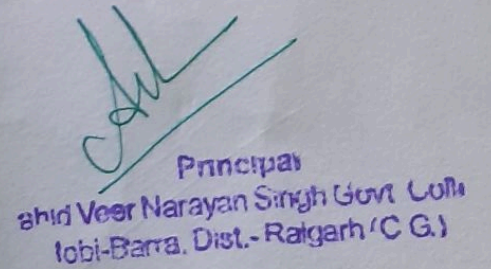 Principal
Shid Veer Narayan Singh Govt Coll.
Jobi-Barra, Dist.- Raigarh (C G.)